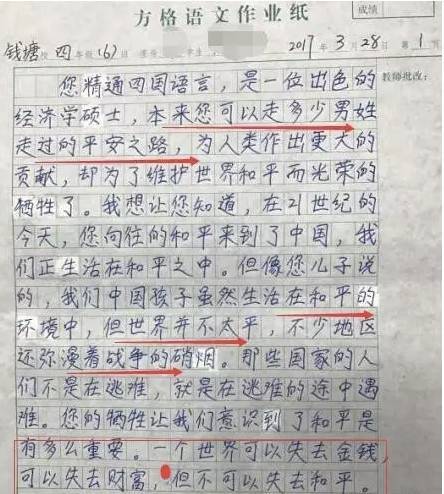 方格语文作业纸
成绩
钱塘校四年级(6)班
学生
2017年3月28日第1
教师批改:
您精通四国语言,是一位出色的
经济学硕士,本来您可以走多少男姓
走过的平安之路,为人类作出更大的
贡献,却为了维护世界和平而光荣的
牺牲了。我想让您知道,在21世纪的
今天,您向往的和平来到了中国,我
们正生活在和平之中。但像您儿子说
的,我们中国孩子虽然生活在和平的
环境中,但世界并不太平,不少地区
还弥漫着战争的硝烟。那些国家的人
们不是在逃难,就是在逃难的途中遇
难。您的牺牲让我们意识到了和平是
有多么重要。一个世界可以失去金钱,
可以失去财富,但不可以失去和平。